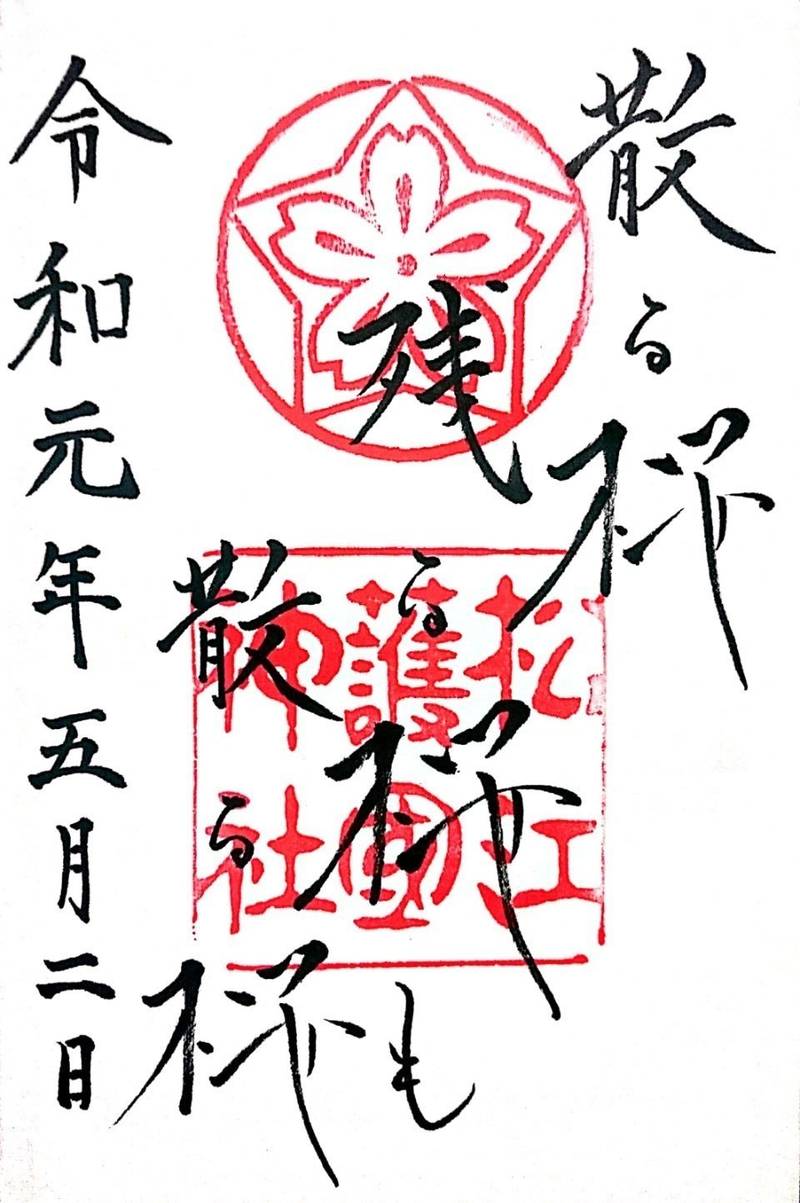 散る桜
残る桜も
散る桜
令和元年五月二日
松江
護國
神社